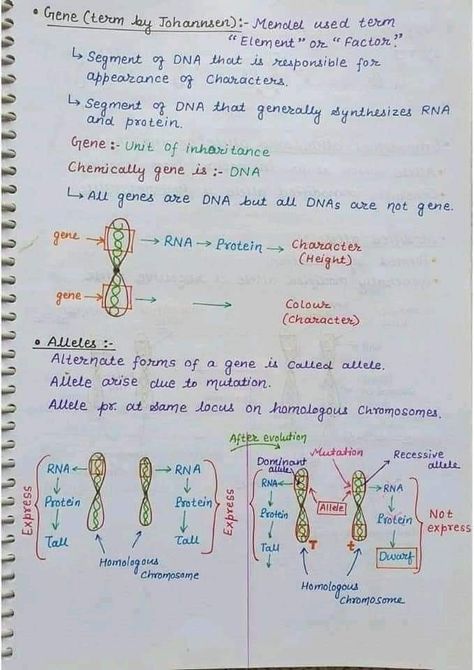 • Gene (term by Johannsen):- Mendel used term
"Element" or "Factor."
↳ Segment of DNA that is responsible for
appearance of Characters.
↳ Segment of DNA that generally synthesizes RNA
and protein.
Gene:- Unit of inharitance
Chemically gene is:- DNA
↳ All genes are DNA but all DNAs are not gene.
gene → → RNA → Protein → Character
(Height)
gene → → → Colour
(Character)
• Alleles :-
Alternate forms of a gene is called allele.
Allele arise due to mutation.
Allele pr. at same locus on homologous Chromosomes.
Express
RNA ←
Protein
Tall
→ RNA
Protein
Tall
Express
Homologous
Chromosome
After evolution
Dominant
allele
Mutation
Recessive
allele
RNA ←
Protein
Tall
Allele
T
t
→ RNA
Protein
Dwarf
Not
express
Homologous
Chromosome